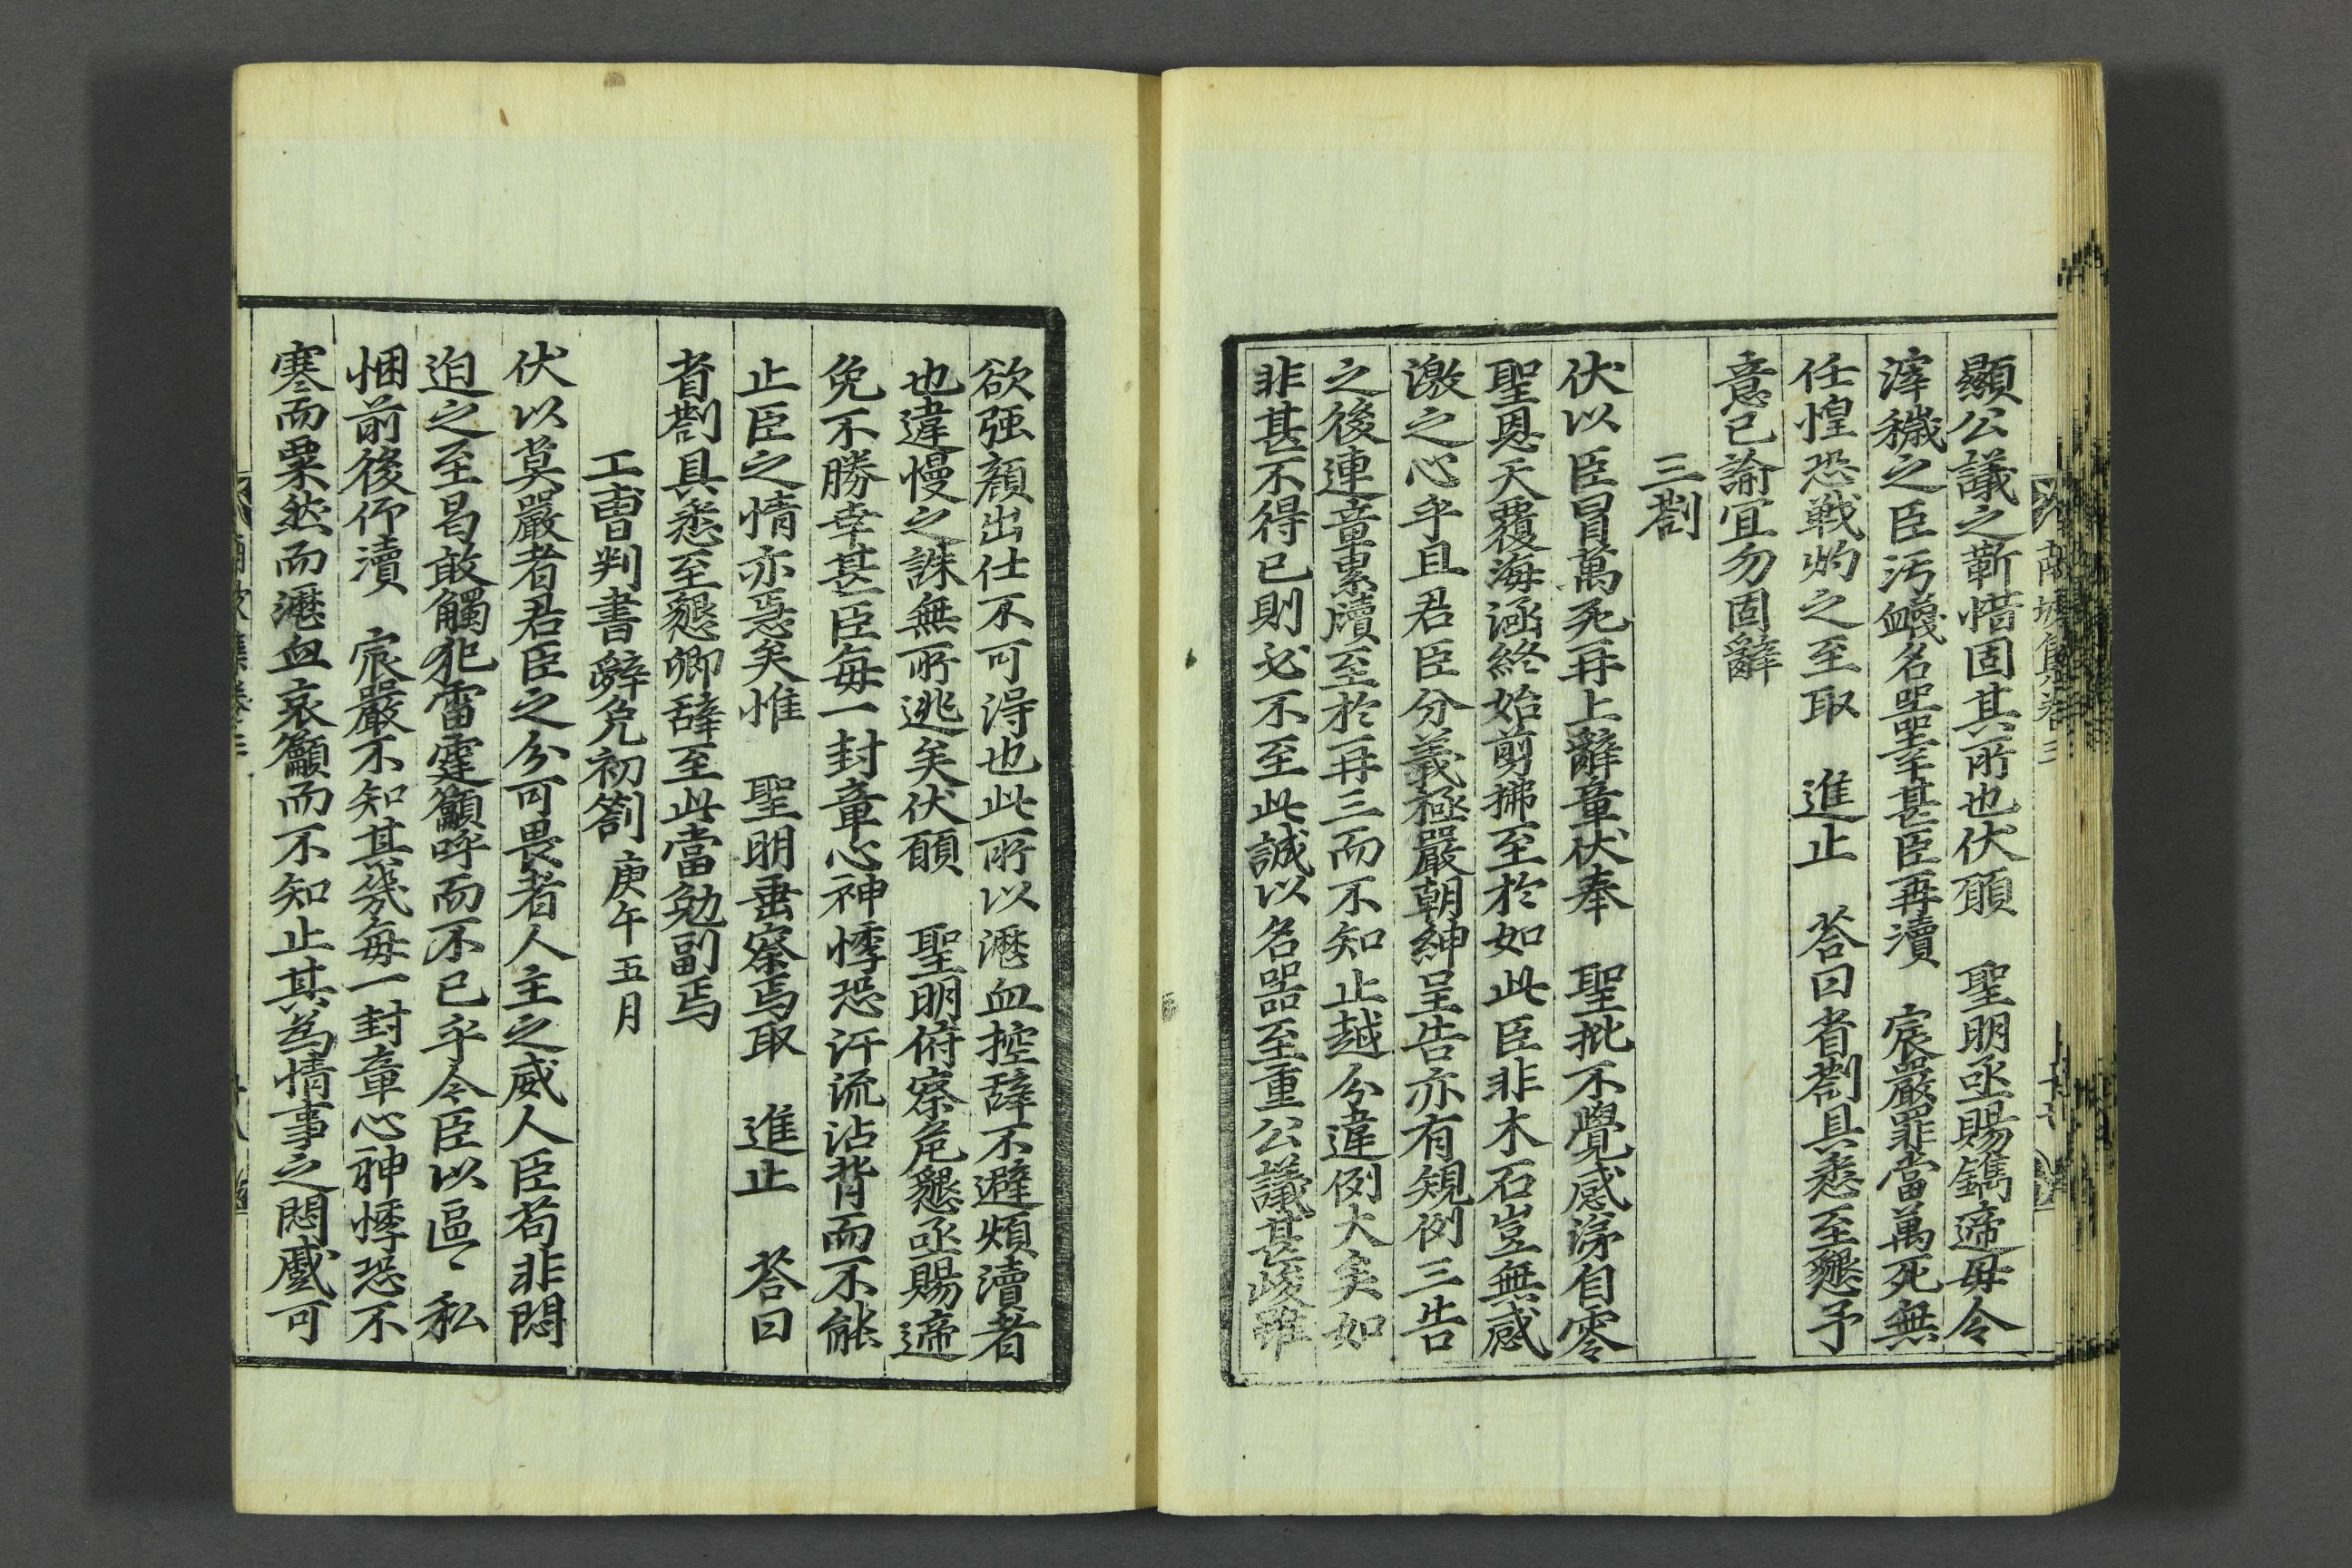 顯公議之靳惜固其所也伏願　聖明亟賜鐫遞毋令
滓穢之臣汚衊名器幸甚臣再瀆　宸嚴罪當萬死無
任惶恐戰灼之至取　進止　答曰省劄具悉至懇予
意已諭宜勿固辭
三劄
伏以臣冒萬死再上辭章伏奉　聖批不覺感涕自零
聖恩天覆海涵終始剪拂至於如此臣非木石豈無感
激之心乎且君臣分義極嚴朝紳呈告亦有規例三告
之後連章累牘至於再三而不知止越分違例大矣如
非甚不得已則必不至此誠以名器至重公議甚峻雖
欲强顔出仕不可得也此所以瀝血控辭不避煩瀆者
也違慢之誅無所逃矣伏願　聖明俯察危懇亟賜遞
免不勝幸甚臣每一封章心神悸恐汗流沾背而不能
止臣之情亦慼矣惟　聖明垂察焉取　進止　答曰
省劄具悉至懇卿辭至此當勉副焉
工曹判書辭免初劄 庚午五月
伏以莫嚴者君臣之分可畏者人主之威人臣苟非悶
迫之至曷敢觸犯雷霆籲呼而不已乎今臣以區〻私
悃前後仰瀆　宸嚴不知其幾每一封章心神悸恐不
寒而粟然而瀝血哀籲而不知止其爲情事之悶蹙可